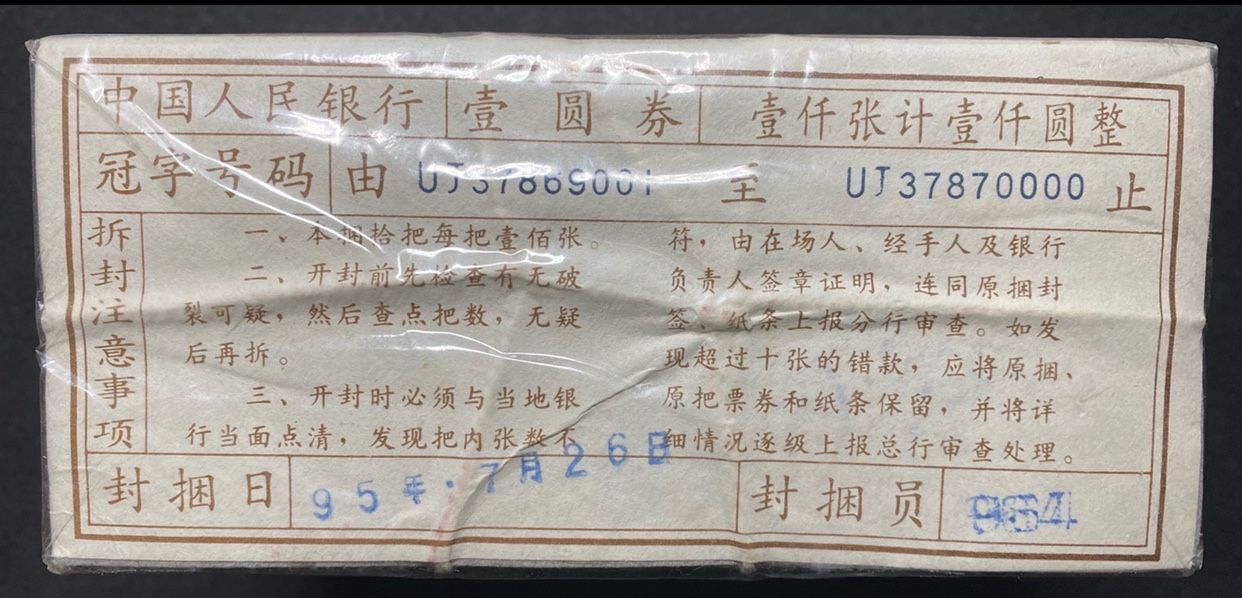 中国人民银行 壹圆券 壹仟张计壹仟圆整
冠字号码 由 UJ37869001 至 UJ37870000 止
拆封注意事项
一、本捆拾把每把壹佰张。
二、开封前先检查有无破
裂可疑，然后查点把数，无疑
后再拆。
三、开封时必须与当地银
行当面点清，发现把内张数不
符，由在场人、经手人及银行
负责人签章证明，连同原捆封
签、纸条上报分行审查。如发
现超过十张的错款，应将原捆、
原把票券和纸条保留，并将详
细情况逐级上报总行审查处理。
封捆日 95年.7月26日 封捆员